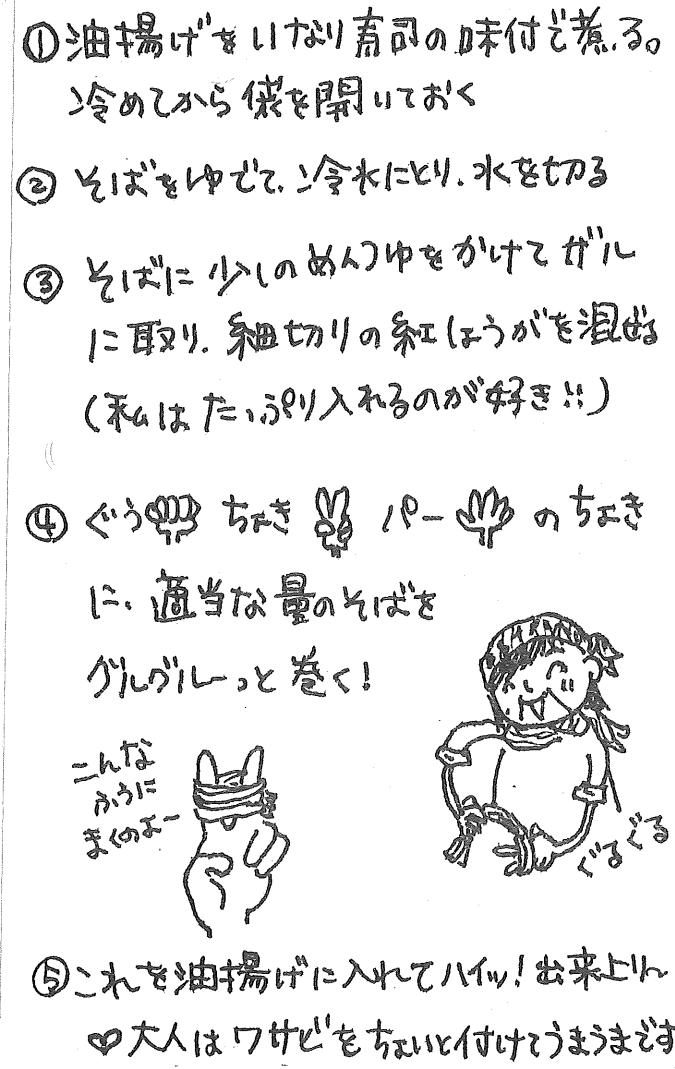 ①油揚げをいなり寿司の味付で煮る。
冷めてから袋を開いておく
②そばをゆでて、冷水にとり、水を切る
③そばに少しのめんつゆをかけてザル
に取り、細切りの紅しょうがを混ぜる
(私はたっぷり入れるのが好き!!)
④ぐう ちょき パー のちょき
に、適当な量のそばを
グルグルーっと巻く!
こんな
ふうに
まくのよー
ぐるぐる
⑤これを油揚げに入れてハイッ!出来上り〜
♡大人はワサビをちょいと付けてうまうまです